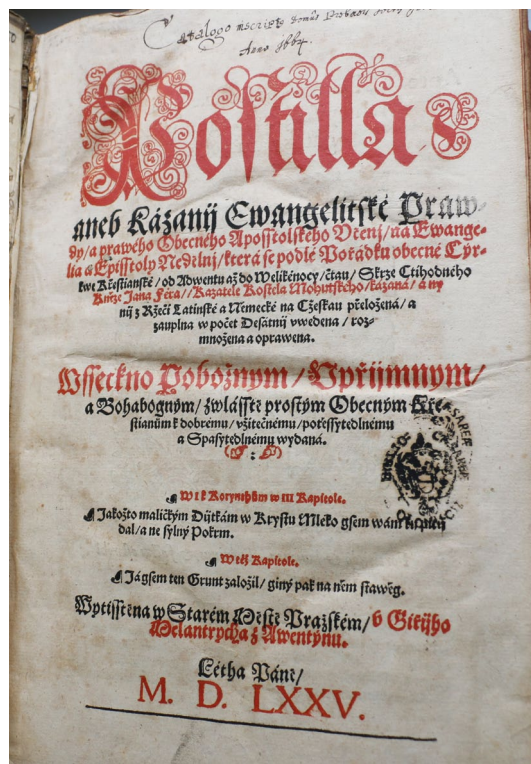 Catalogo inscripta domûs
Anno 1664.
Postilla
aneb Kázanij Ewangelitské Praw-
dy / a prawého Obecného Aposstolského Včenj / na Ewange-
lia a Episstoly Nedělnj / která se podlé Pořádku obecné Cýr-
kwe Křestianské / od Adwentu až do Welikénocy / čtau / Skrze Ctihodného
Kněze Jana Féra / / Kazatele Kostela Mohutského / kázaná / a ny
nij z Ržeči Latinské a Německé na Cžeskau přeložená / a
zauplna w počet Desátný vwedena / roz-
množena a oprawena.
Wsseckno Pobožným / Vpřijmnym /
a Bohabogným / zwlásstě prostým Obecným Kře-
stianům k dobrému / vžitečnému / potěssytedlnému
a Spasytedlnému wydaná.
W I k Korynthům w III Kapitole.
Jakožto maličkým Dijtkám w Krystu Mléko gsem wám
dal / a ne sylný Pokrm.
W též Kapitole.
Já gsem ten Grunt založil / giný pak na něm stawěg.
Wytisstěna w Starém Městě Pražském / v Giřijho
Melantrycha z Awentýnu.
Létha Páně /
M. D. LXXV.